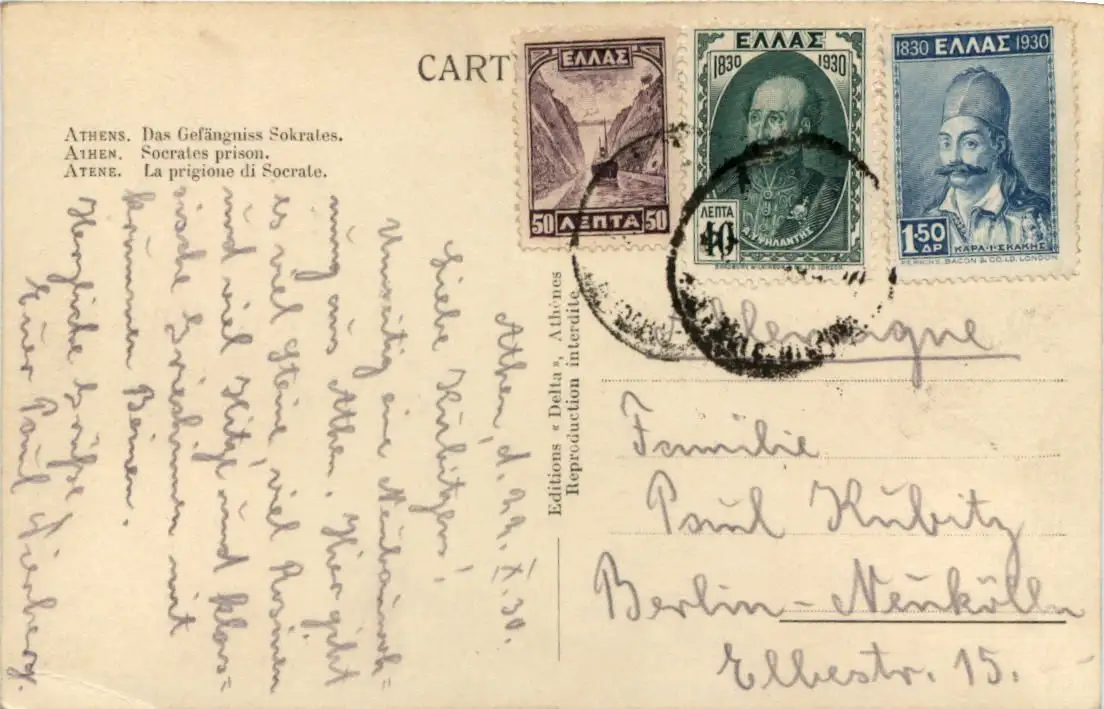 CART
ΕΛΛΑΣ
50 ΛΕΠΤΑ 50
ΕΛΛΑΣ
1830 1930
ΛΕΠΤΑ
10
Α. ΥΨΗΛΑΝΤΗΣ
1830 ΕΛΛΑΣ 1930
1·50
ΔΡ
ΚΑΡΑ·Ι·ΣΚΑΚΗΣ
PERKINS, BACON & CO. LD. LONDON
ATHENS. Das Gefängniss Sokrates.
ATHEN. Socrates prison.
ATENE. La prigione di Socrate.
Athen, d. 22. X. 30.
Liebe Kübitzens!
Umseitig eine
nung aus Athen. Hier gibt
es viel Steine, viel Rosinen
und viel Hitze und klas=
sische Griechinnen mit
krummen Beinen.
Herzliche Grüße
Euer Paul
Editions « Delta », Athènes
Reproduction interdite
Allemagne
Familie
Paul Kübitz
Berlin-Neukölln
Elbestr. 15.